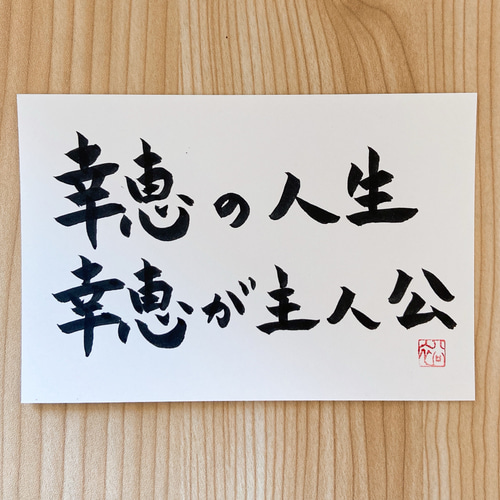 幸恵の人生
幸恵が主人公